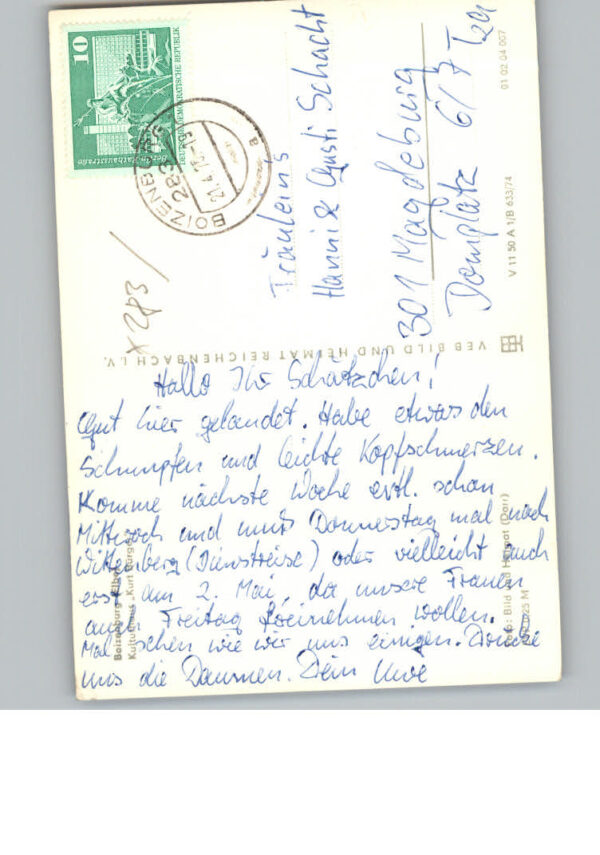 10
DEUTSCHE DEMOKRATISCHE REPUBLIK
BOIZENBURG
283
a
x 283 /
Fräuleins
Hanni & Gusti Schacht
301 Magdeburg
Domplatz 6/7
01 02 04 007
V 11 50 A 1/B 633/74
VEB BILD UND HEIMAT REICHENBACH i. V.
Hallo Ihr Schätzchen!
Gut hier gelandet. Habe etwas den
Schnupfen und leichte Kopfschmerzen.
Komme nächste Woche evtl. schon
Mittwoch und muß Donnerstag mal nach
Wittenberg (Dienstreise) oder vielleicht auch
erst am 2. Mai, da unsere Frauen
am Freitag freinehmen wollen.
Mal sehen wie wir uns einigen. Drücke
uns die Daumen. Dein Uwe
Boizenburg (Elbe)
Kulturhaus „Kurt
Foto: Bild und Heimat (Dorr)